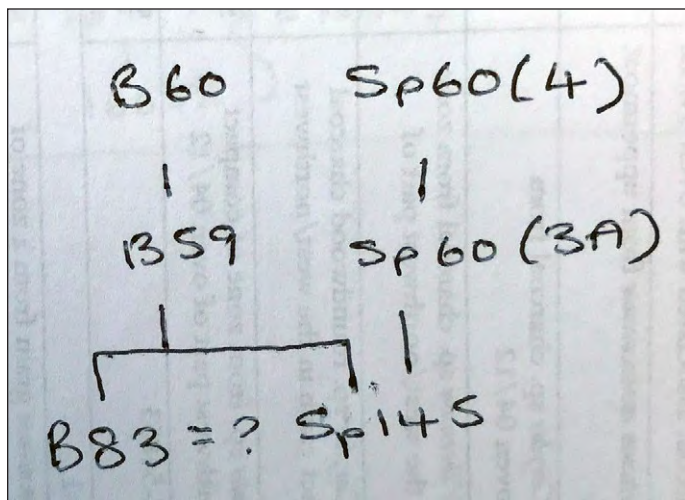 B60 Sp60(4)
B59 Sp60(3A)
B83 = ? Sp145